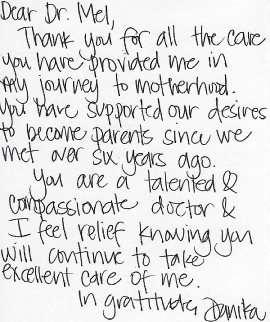 Dear Dr. Mel,
Thank you for all the care
you have provided me in
my journey to motherhood.
You have supported our desires
to become parents since we
met over six years ago.
You are a talented &
compassionate doctor &
I feel relief knowing you
will continue to take
excellent care of me.
In gratitude, Danika